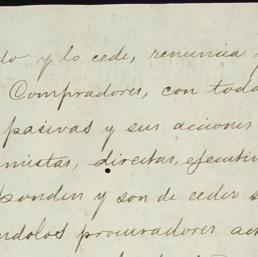 do y lo cede, renuncia y
Compradores, con toda
pasivas y sus acciones
mistas, directas, ejecutiv
ponden y son de ceder s
ndolos procuradores act